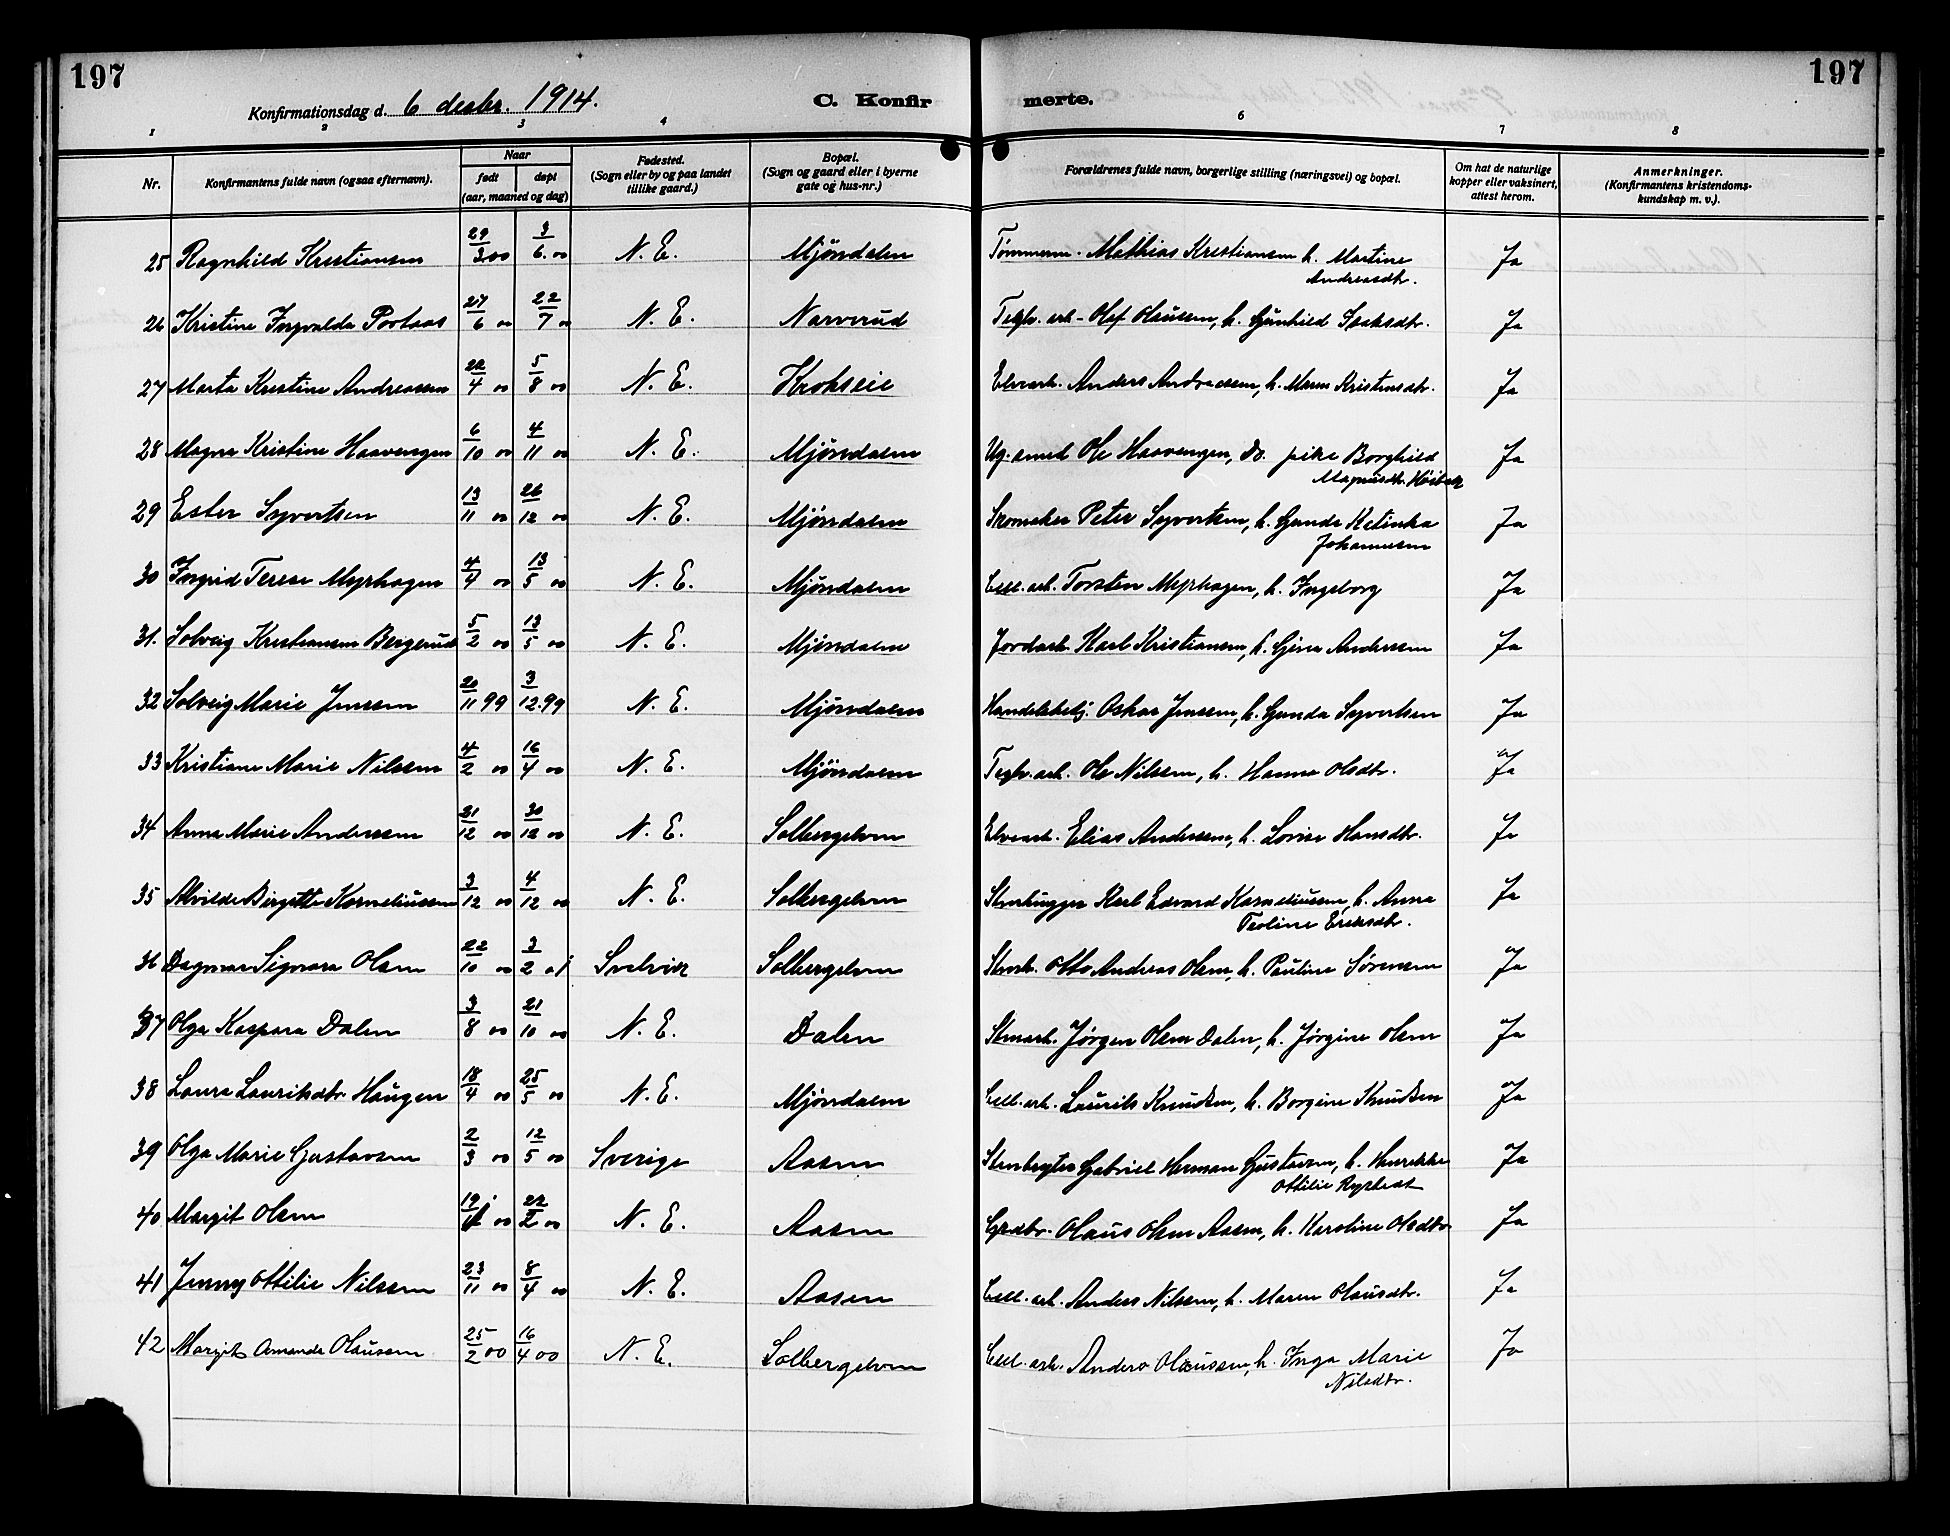 197
197
Konfirmationsdag d. 6 desbr. 1914.
C. Konfir
merte.
1 2 3 4 6 7 8
Nr. Konfirmantens fulde navn (ogsaa efternavn). Naar født døpt (aar, maaned og dag) Fødested. (Sogn eller by og paa landet tillike gaard.) Bopæl. (Sogn og gaard eller i byerne gate og hus-nr.) Forældrenes fulde navn, borgerlige stilling (næringsvei) og bopæl. Om hat de naturlige kopper eller vaksinert, attest herom. Anmerkninger. (Konfirmantens kristendoms-kundskap m. v.).
25 Ragnhild Kristiansen 29/3.00 3/6.00 N. E. Mjöndalen Tømmerm. Mathias Kristiansen h. Martine Ja
Andreasdtr.
26 Kristine Ingvalda Portaas 27/6 00 22/7 00 N. E. Narverud Teglv. arb. Olef Olaussen, h. Gunhild Isaksdtr. Ja
27 Marta Kristine Andreassen 22/4 00 5/8 00 N. E. Krokseie Elvearb. Anders Andreassen, h. Maren Kristensdtr. Ja
28 Magna Kristine Haavengen 6/10 00 4/11 00 N. E. Mjöndalen Ug. smed Ole Haavengen, do. pike Borghild Ja
Magnusdtr.
29 Ester Syvertsen 13/11 00 26/12 00 N. E. Mjöndalen Skomaker Peter Syvertsen, h. Gunda Katinka Ja
Johannesen
30 Ingrid Terese Myrhagen 4/4 00 13/5 00 N. E. Mjöndalen Cell. arb. Torsten Myrhagen, h. Ingeborg Ja
31. Solveig Kristiansen Bergerud 5/2 00 13/5 00 N. E. Mjöndalen Jordarb. Karl Kristiansen, h. Gina Andersen Ja
32 Solveig Marie Jenssen 20/11 99 3/12.99 N. E. Mjöndalen Handelsbetj. Oskar Jenssen, h. Gunda Syvertsen Ja
33 Kristiane Marie Nilssen 4/2 00 16/4 00 N. E. Mjöndalen Teglv. arb. Ole Nilssen, h. Hanna Olsdtr. Ja
34 Anna Marie Anderssen 21/12 00 30/12 00 N. E. Solbergelven Elvearb. Elias Anderssen, h. Lovise Hansdtr. Ja
35 Alvilde Birgitte Korneliussen 3/12 00 4/12 00 N. E. Solbergelven Stenhugger Karl Edvard Korneliussen, h. Anna Ja
Teoline Eriksdtr.
36 Dagmar Signora Olsen 22/10 00 3/2 01 Svelvik Solbergelven Stenarb. Otto Andreas Olsen, h. Pauline Sørensen Ja
37 Olga Kaspara Dalen 3/8 00 21/10 00 N. E. Dalen Stenarb. Jørgen Olsen Dalen, h. Jørgine Olsen Ja
38 Laura Lauritsdtr. Haugen 18/4 00 25/5 00 N. E. Mjöndalen Cell. arb. Laurits Knudsen, h. Borgine Knudsen Ja
39 Olga Marie Gustavsen 2/3 00 12/5 00 Sverige Aasen Gabriel Herman Gustavsen, h. Henrikke Ja
Ottilie
40 Margit Olsen 19/1 00 22/2 00 N. E. Aasen Grdbr. Olaus Olsen Aasen, h. Karoline Olsdtr. Ja
41 Jenny Ottilie Nilssen 23/11 00 8/4 00 N. E. Aasen Cell. arb. Anders Nilssen, h. Maren Olausdtr. Ja
42 Margit Amanda Olaussen 25/2 00 16/4 00 N. E. Solbergelven Cell. arb. Anders Olaussen, h. Inga Marie Ja
Nilsdtr.